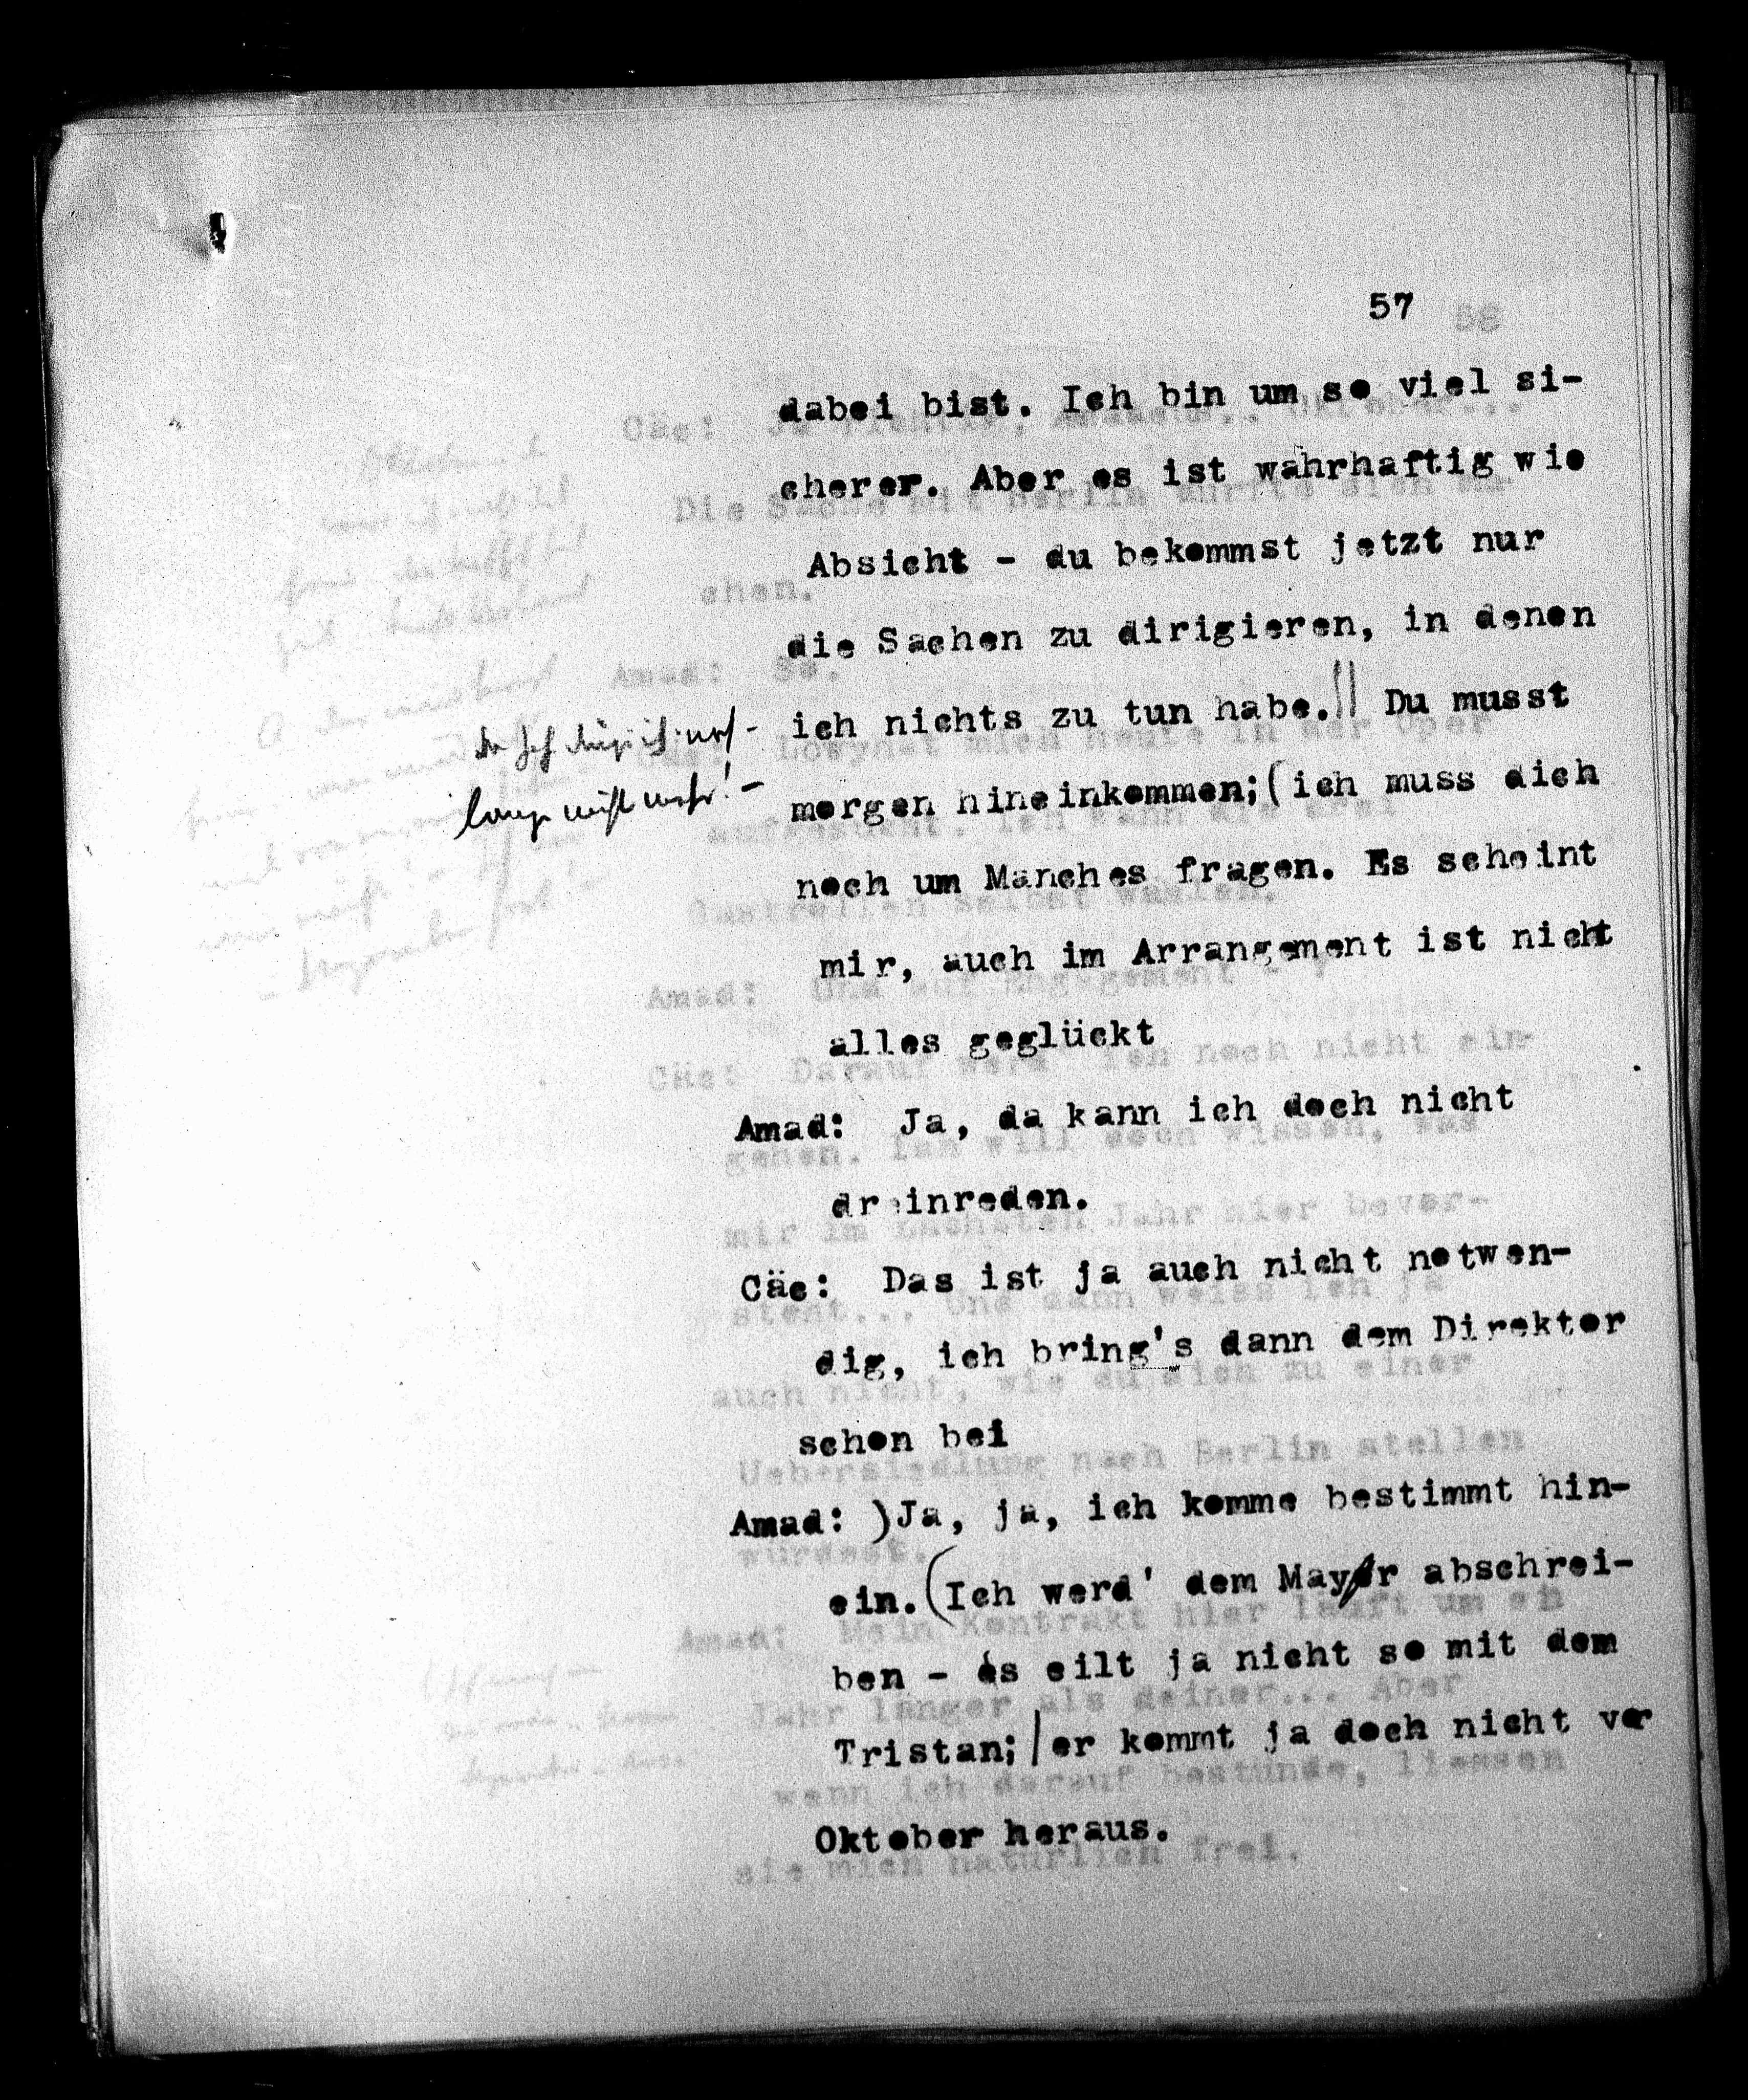 57
dabei bist. Ich bin um so viel si-
cherer. Aber es ist wahrhaftig wie
Absicht - du bekommst jetzt nur
die Sachen zu dirigieren, in denen
ich nichts zu tun habe.|| Du musst
morgen hineinkommen;(ich muss dich
noch um Manches fragen. Es scheint
mir, auch im Arrangement ist nicht
alles geglückt
Amad: Ja, da kann ich doch nicht
dreinreden.
Cäc: Das ist ja auch nicht notwen-
dig, ich bring's dann dem Direktor
schon bei
Amad: )Ja, ja, ich komme bestimmt hin-
ein.(Ich werd' dem Mayer abschrei-
ben - es eilt ja nicht so mit dem
Tristan;|er kommt ja doch nicht vor
Oktober heraus.